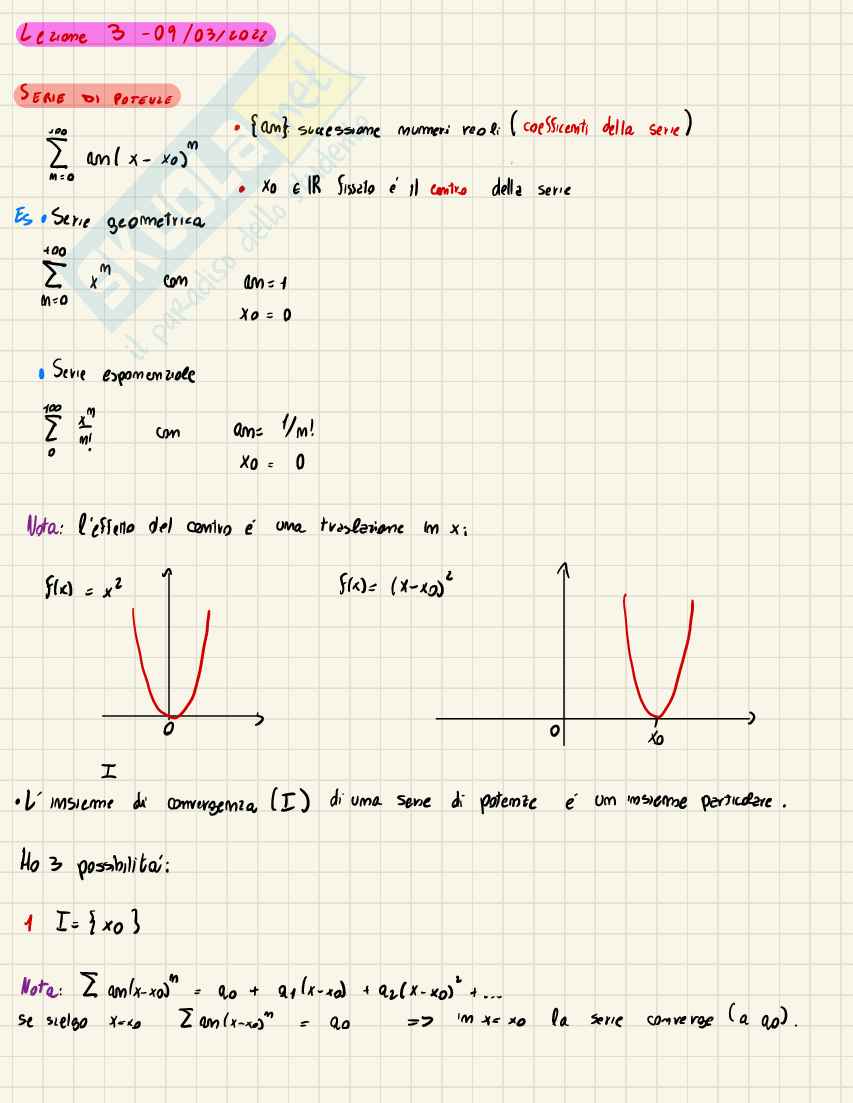 Lezione 3 - 09/03/2022
SERIE DI POTENZE
+∞
∑ an(x - x0)^n
n=0
• {an} successione numeri reali (coefficenti della serie)
• x0 ∈ IR fissato é il centro della serie
Es • Serie geometrica
+∞
∑ x^n con an = 1
n=0
x0 = 0
• Serie esponenziale
+∞
∑ x^n/n! con an = 1/n!
0
x0 = 0
Nota: l'effetto del centro é una traslazione in x:
f(x) = x²
f(x) = (x-x0)²
0
0 x0
I
• L' insieme di convergenza (I) di una serie di potenze é un insieme particolare.
Ho 3 possibilitá:
1 I = {x0}
Nota: ∑ an(x-x0)^n = a0 + a1(x-x0) + a2(x-x0)² + ...
se sielgo x=x0 ∑ an(x-x0)^n = a0 => in x = x0 la serie converge (a a0).
SKUOLA.net
il paradiso dello studente